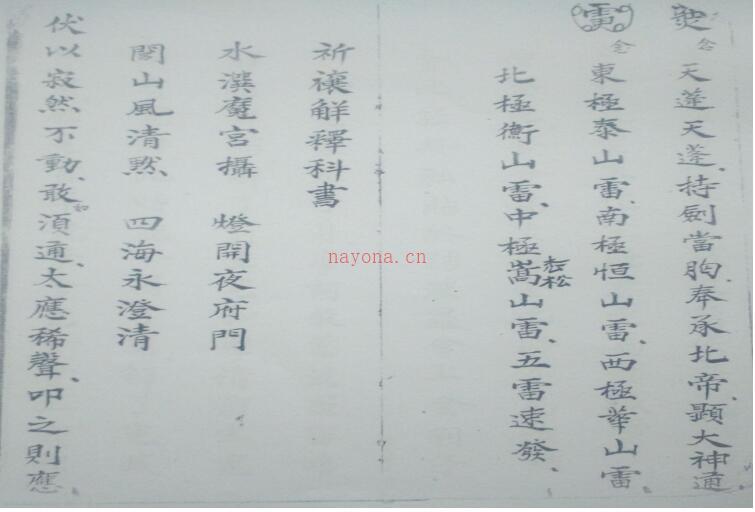 念 天蓬天蓬、持劍當胸、奉承北帝、顯大神通、
雷 念 東極泰山雷、南極恒山雷、西極華山雷
北極衡山雷、中極嵩山雷、五雷速發、
祈禳解釋科書
水潠魔宮攝 燈開夜府門
山風清黙 四海永澄清
伏以寂然不動、敢如須通、太應稀聲、叩之則應、
nayona.cn